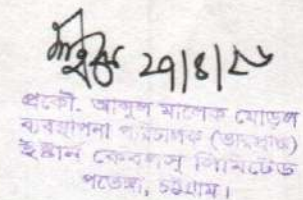 ২৭|৪|২৬
প্রকৌ. আব্দুল মালেক মোড়ল
ব্যবস্থাপনা পরিচালক (ভারপ্রাপ্ত)
ইষ্টার্ন কেবলস্ লিমিটেড
পতেঙ্গা, চট্টগ্রাম।